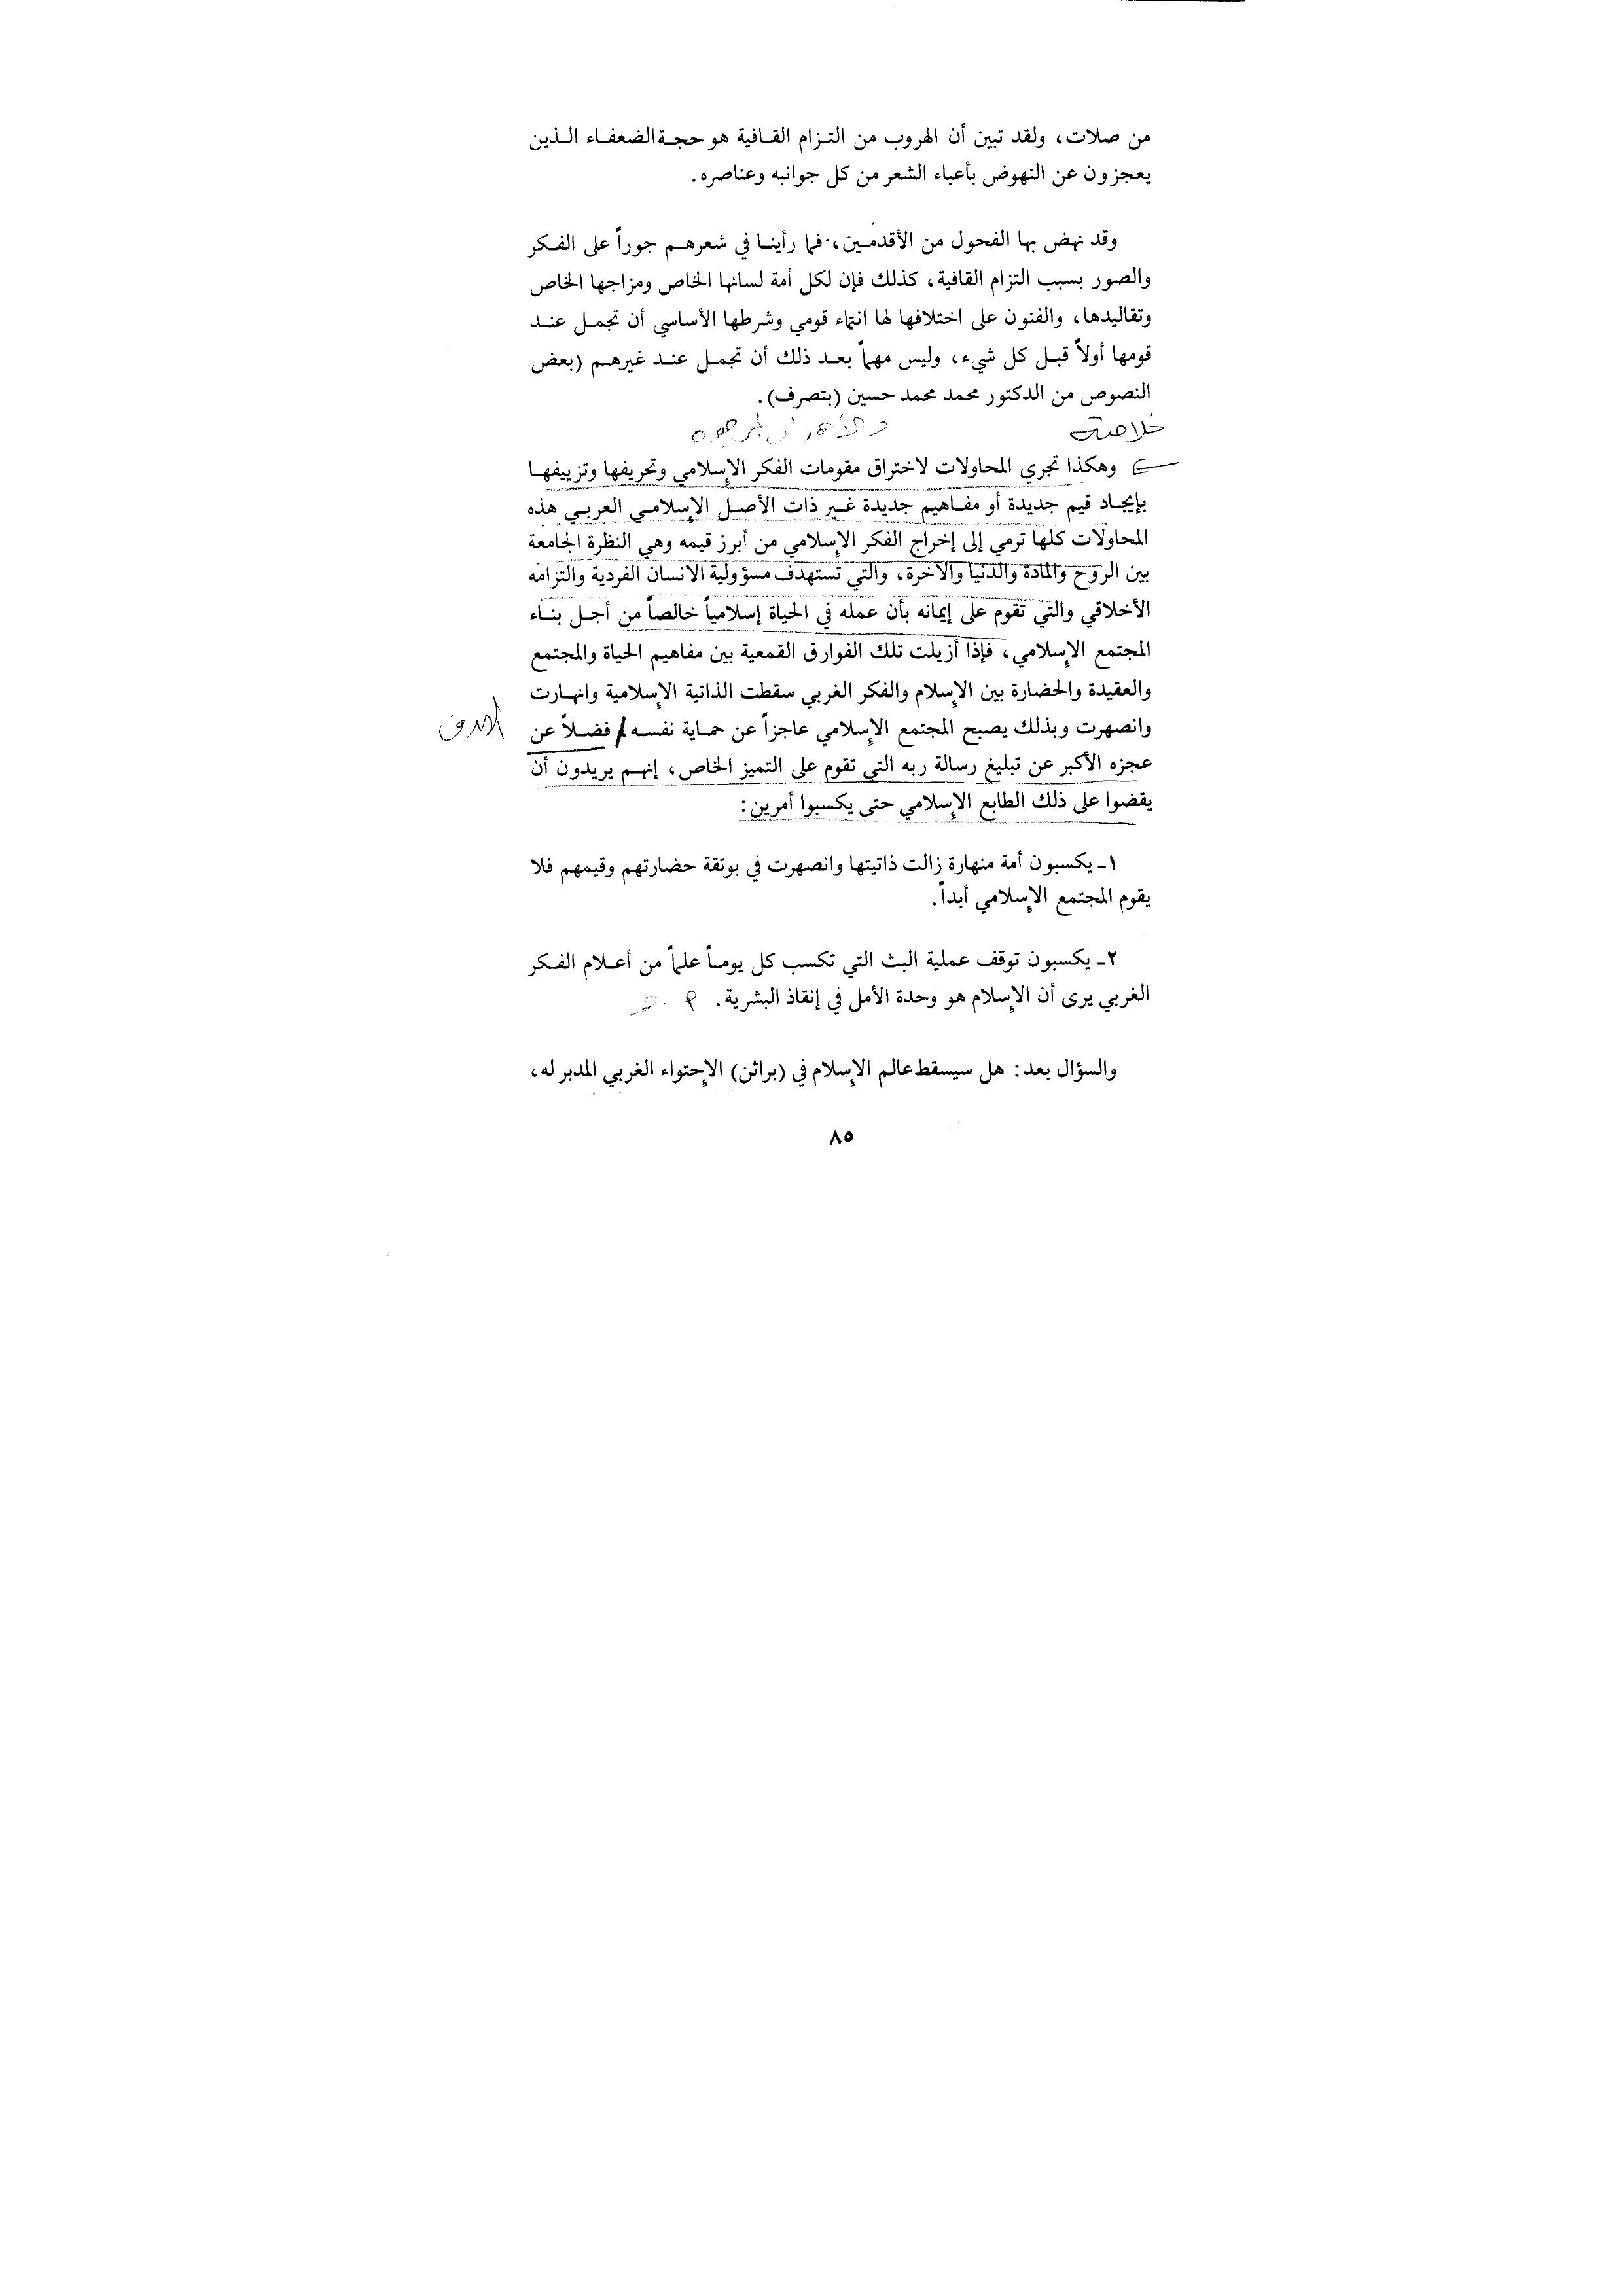 من صلات، ولقد تبين أن الهروب من التزام القافية هو حجة الضعفاء الذين
يعجزون عن النهوض بأعباء الشعر من كل جوانبه وعناصره.
وقد نهض بها الفحول من الأقدمين، فما رأينا في شعرهم جوراً على الفكر
والصور بسبب التزام القافية، كذلك فإن لكل أمة لسانها الخاص ومزاجها الخاص
وتقاليدها، والفنون على اختلافها لها انتماء قومي وشرطها الأساسي أن تجمل عند
قومها أولاً قبل كل شيء، وليس مهماً بعد ذلك أن تجمل عند غيرهم (بعض
النصوص من الدكتور محمد محمد حسين (بتصرف).
خلاصة
وهكذا تجري المحاولات لاختراق مقومات الفكر الإسلامي وتحريفها وتزييفها
بإيجاد قيم جديدة أو مفاهيم جديدة غير ذات الأصل الإسلامي العربي هذه
المحاولات كلها ترمي إلى إخراج الفكر الإسلامي من أبرز قيمه وهي النظرة الجامعة
بين الروح والمادة والدنيا والآخرة، والتي تستهدف مسؤولية الانسان الفردية والتزامه
الأخلاقي والتي تقوم على إيمانه بأن عمله في الحياة إسلامياً خالصاً من أجل بناء
المجتمع الإسلامي، فإذا أزيلت تلك الفوارق القمعية بين مفاهيم الحياة والمجتمع
والعقيدة والحضارة بين الإسلام والفكر الغربي سقطت الذاتية الإسلامية وانهارت
وانصهرت وبذلك يصبح المجتمع الإسلامي عاجزاً عن حماية نفسه، فضلاً عن
الهدف
عجزه الأكبر عن تبليغ رسالة ربه التي تقوم على التميز الخاص، إنهم يريدون أن
يقضوا على ذلك الطابع الإسلامي حتى يكسبوا أمرين:
١ـ يكسبون أمة منهارة زالت ذاتيتها وانصهرت في بوتقة حضارتهم وقيمهم فلا
يقوم المجتمع الإسلامي أبداً.
٢ـ يكسبون توقف عملية البث التي تكسب كل يوماً علماً من أعلام الفكر
الغربي يرى أن الإسلام هو وحدة الأمل في إنقاذ البشرية.
والسؤال بعد: هل سيسقط عالم الإسلام في (براثن) الإحتواء الغربي المدبر له،
٨٥